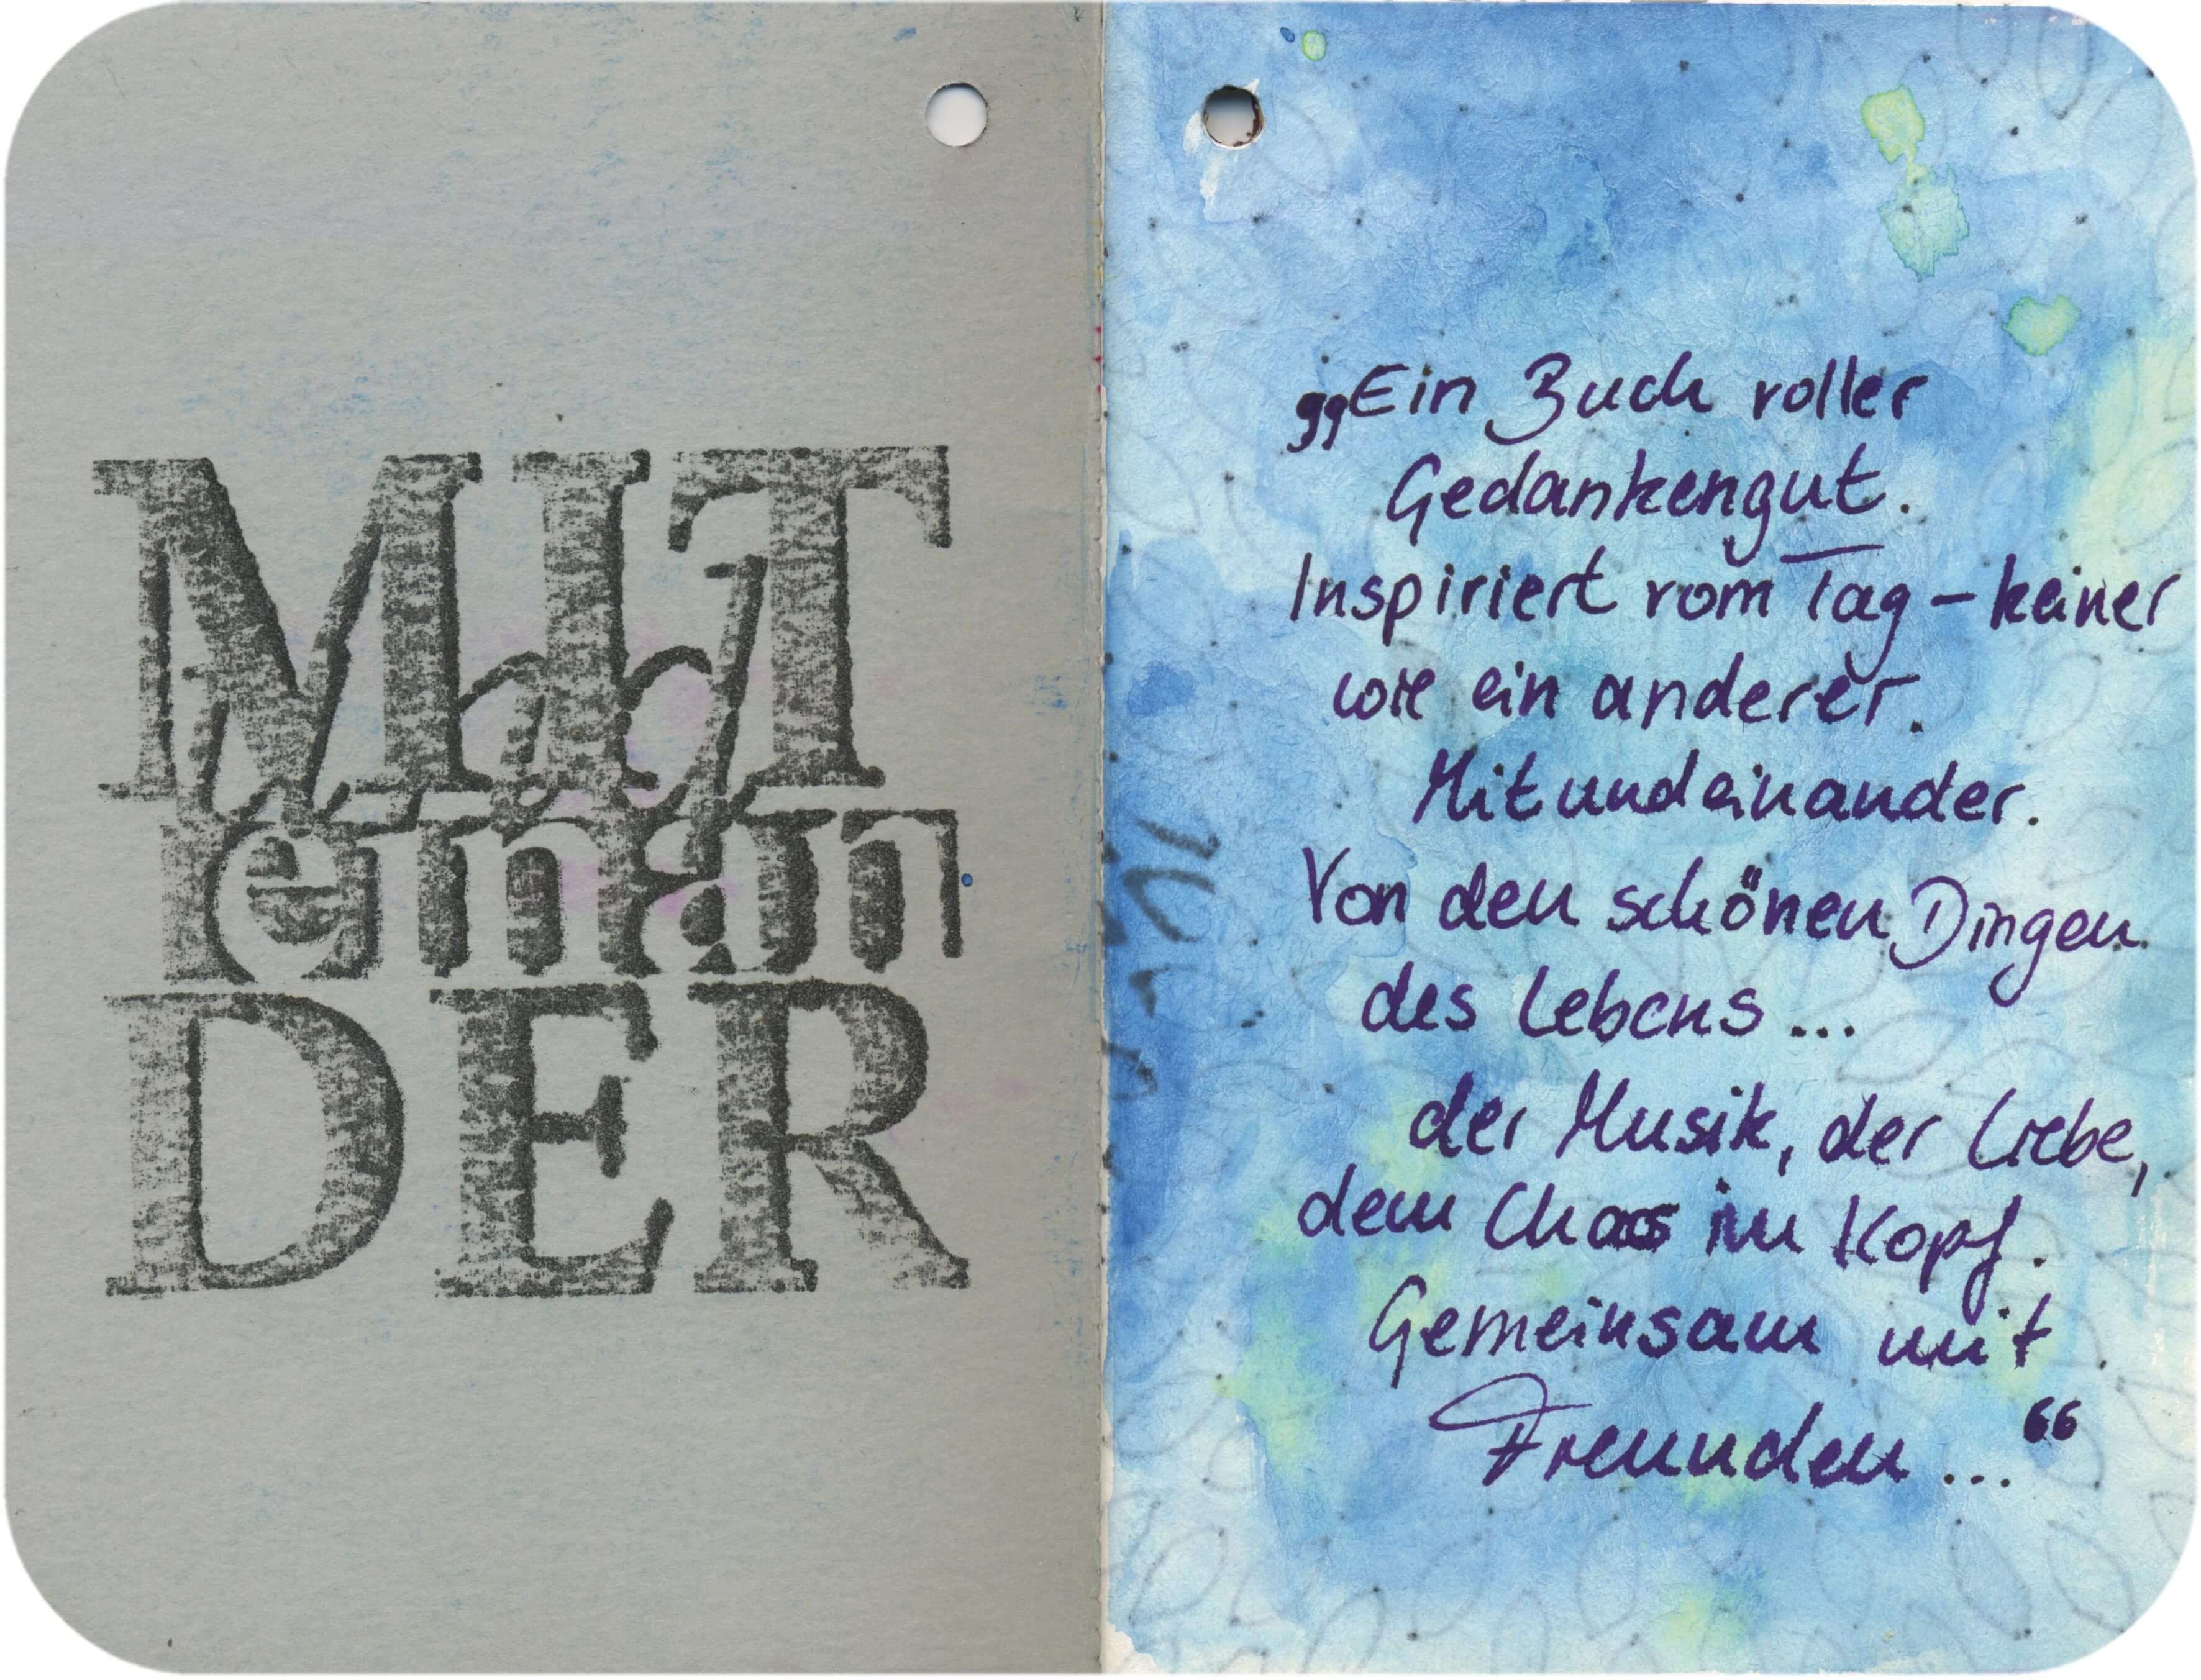 MIT
und
einan
DER
„Ein Buch voller
Gedankengut.
Inspiriert vom Tag – keiner
wie ein anderer.
Mitundeinander.
Von den schönen Dingen
des Lebens...
der Musik, der Liebe,
dem Chaos im Kopf.
Gemeinsam mit
Freunden..."